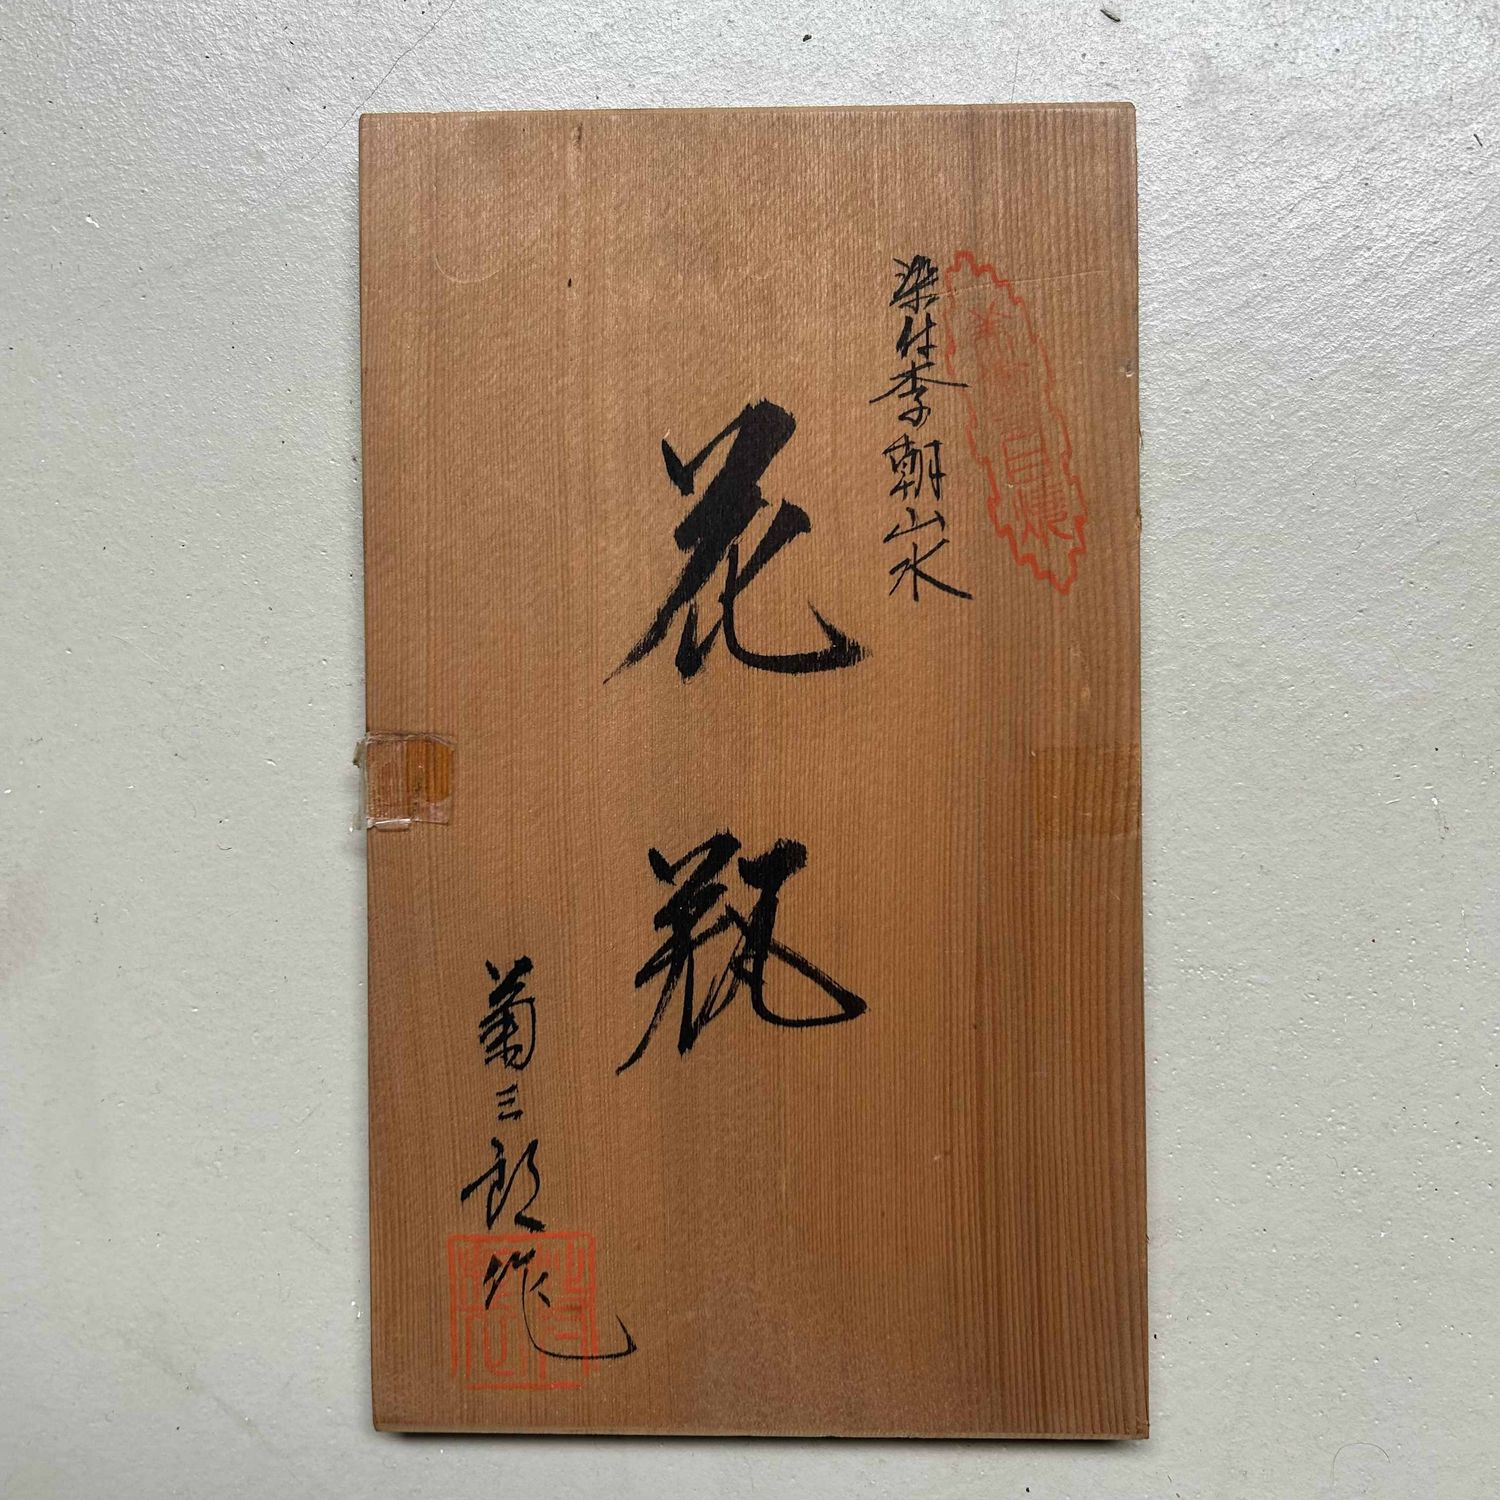 染付李朝山水
花瓶
菊三郎作